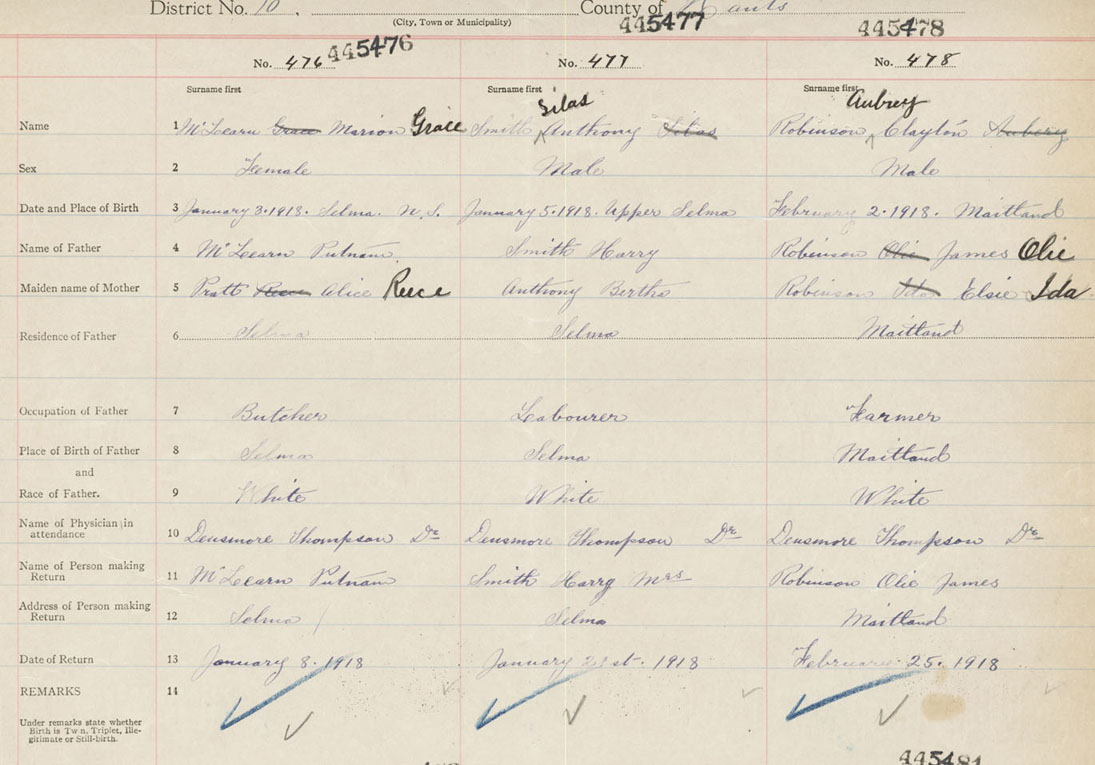 District No. 10. County of Hants
(City, Town or Municipality)
445476 445477 445478
No. 476 No. 477 No. 478
Surname first Surname first Surname first
Silas Aubrey
Name 1 McLearn Grace Marion Grace Smith Anthony Silas Robinson Clayton Aubery
Sex 2 Female Male Male
Date and Place of Birth 3 January 3. 1918. Selma. N.S. January 5. 1918. Upper Selma February 2. 1918. Maitland
Name of Father 4 McLearn Putnam. Smith Harry Robinson Olie James Olie
Maiden name of Mother 5 Pratt Reece Alice Reece Anthony Bertha Robinson Ida Elsie Ida
Residence of Father 6 Selma Selma Maitland
Occupation of Father 7 Butcher Labourer Farmer
Place of Birth of Father 8 Selma Selma Maitland
and
Race of Father. 9 White White White
Name of Physician in
attendance 10 Densmore Thompson Dr Densmore Thompson Dr Densmore Thompson Dr
Name of Person making
Return 11 McLearn Putnam Smith Harry Mrs Robinson Olie James
Address of Person making
Return 12 Selma Selma Maitland
Date of Return 13 January 8. 1918 January 21st. 1918 February. 25. 1918
REMARKS 14
Under remarks state whether
Birth is Twin, Triplet, Ille-
girimate or Still-birth.
445481